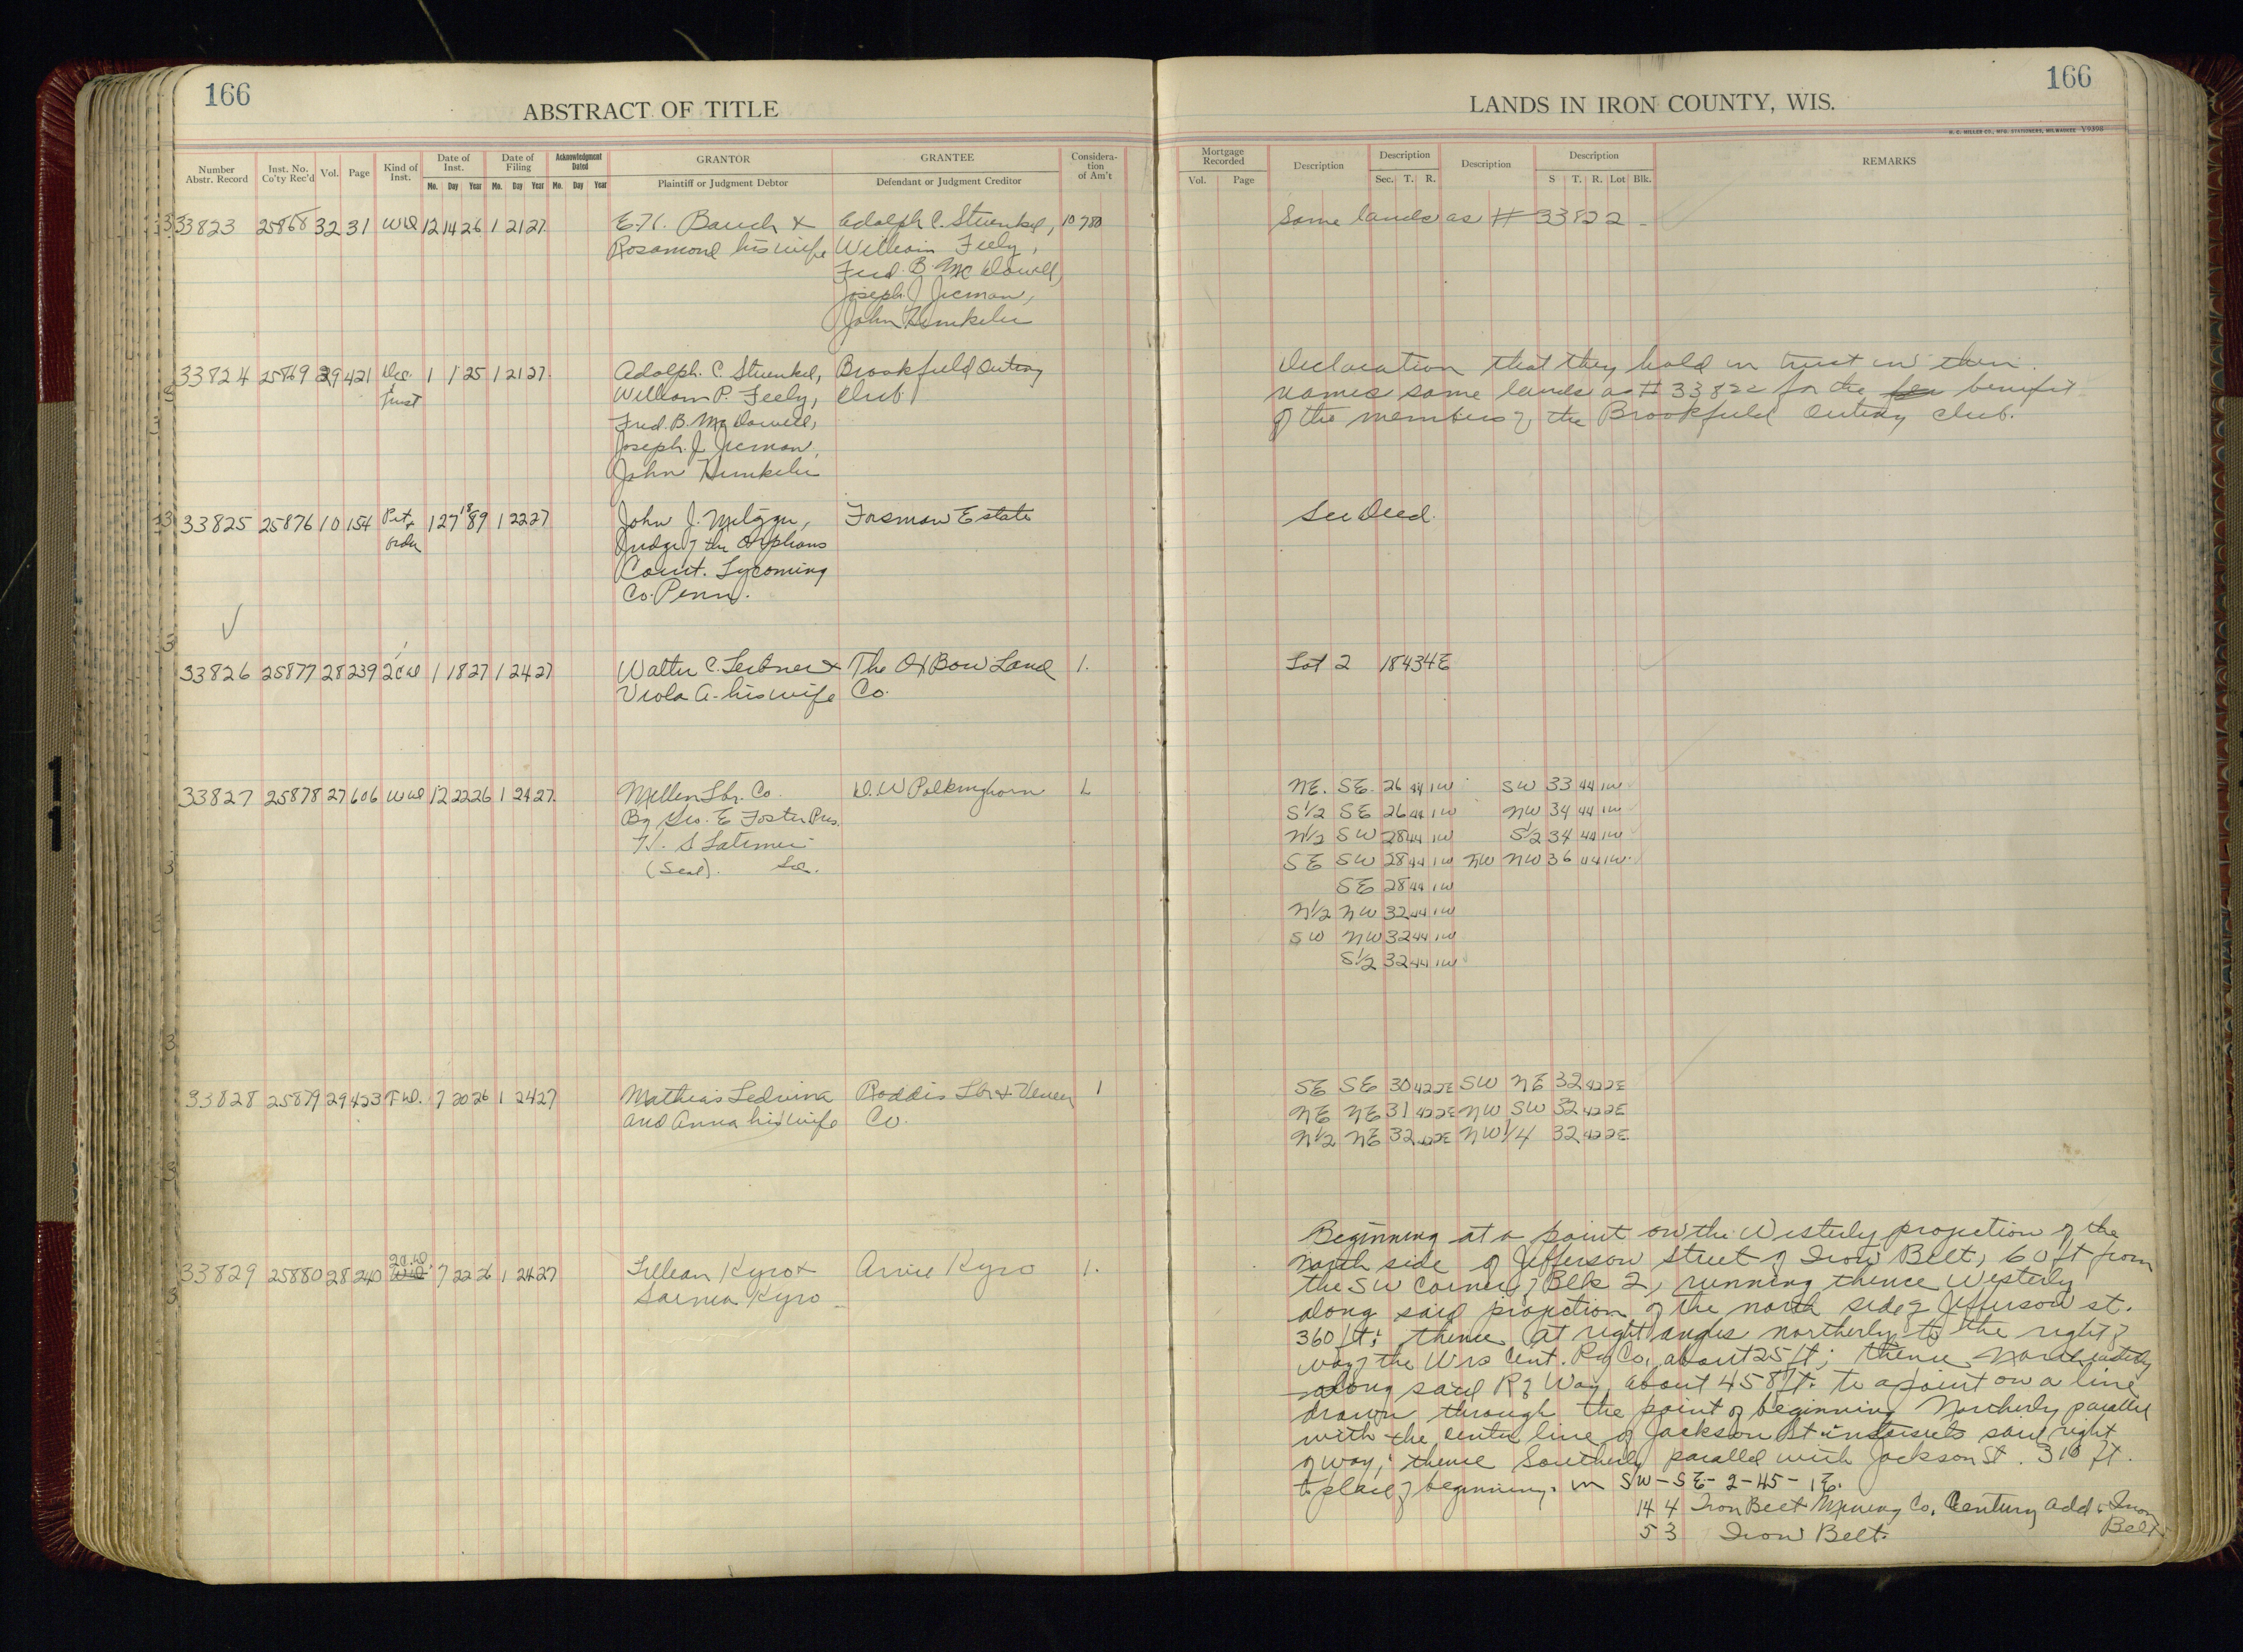 166
ABSTRACT OF TITLE
Number Abstr. Record Inst. No. Co'ty Rec'd Vol. Page Kind of Inst. Date of Inst. Mo. Day Year Date of Filing Mo. Day Year Acknowledgment Dated Mo. Day Year GRANTOR Plaintiff or Judgment Debtor GRANTEE Defendant or Judgment Creditor Considera-tion of Am't
33823 25868 32 31 WD 12 14 26 1 21 27 E.H. Bauch & Adolph C. Stuenkel, 10 780
Rosamond his wife William Feely,
Fred. B. McDowell,
Joseph J. Jicman,
John Hunkeler
33824 25869 29 421 Dec. 1 1 25 1 21 27 Adolph. C. Stuenkel, Brookfield Outing
& Trust William P. Feely, Club
Fred. B. McDowell,
Joseph. J. Jicman,
John Hunkeler
33825 25876 10 154 Pet. & 1 27 1889 1 22 27 John J. Metzger, Fosman Estate
order Judge of the Orphans
Court. Lycoming
Co. Penn.
33826 25877 28 239 2CD 1 18 27 1 24 27 Walter C. Leitner & The Ox Bow Land 1.
Viola A. his wife Co.
33827 25878 27 606 WD 12 22 26 1 24 27 Mellen Lbr. Co. D. W Polkinghorn 1.
By Geo. E Foster Pres.
H. S Latimer
(Seal). Sec.
33828 25879 29 423 T WD. 7 20 26 1 24 27 Mathias Ledvina Roddis Lbr & Veneer 1
and Anna his wife Co.
33829 25880 28 240 2C.WD. 7 22 26 1 24 27 Kyro & Arvie Kyro 1.
Kyro
166
LANDS IN IRON COUNTY, WIS.
H. C. MILLER CO., MFG. STATIONERS, MILWAUKEE V9398
Mortgage Recorded Vol. Page Description Description Sec. T. R. Description Description S T. R. Lot Blk. REMARKS
Same lands as # 33822
Declaration that they hold in trust in their
names same lands as # 33822 for the benefit
of the members of the Brookfield Outing Club.
See Deed.
Lot 2 18 43 4E
NE. SE. 26 44 1W SW 33 44 1W
S1/2 SE 26 44 1W NW 34 44 1W
N1/2 SW 28 44 1W S1/2 34 44 1W
SE SW 28 44 1W NW NW 36 44 1W
SE 28 44 1W
N1/2 NW 32 44 1W
SW NW 32 44 1W
S1/2 32 44 1W
SE SE 30 42 2E SW NE 32 42 2E
NE NE 31 42 2E NW SW 32 42 2E
N1/2 NE 32 42 2E NW1/4 32 42 2E
Beginning at a point on the Westerly projection of the
north side of Jefferson Street of Iron Belt, 60 ft from
the SW Corner of Blk 2, running thence Westerly
along said projection of the north side of Jefferson St.
360 ft; thence at right angles northerly to the right of
way of the Wis Cent. Ry Co. about 25 ft; thence Northeasterly
along said R of Way about 458 ft. to a point on a line
drawn through the point of beginning Northerly parallel
with the center line of Jackson St intersects said right
of way; thence Southerly parallel with Jackson St. 310 ft.
to place of beginning. in SW-SE-2-45-1E.
14 4 Iron Belt Mining Co. Century Add. Iron
Belt
5 3 Iron Belt.